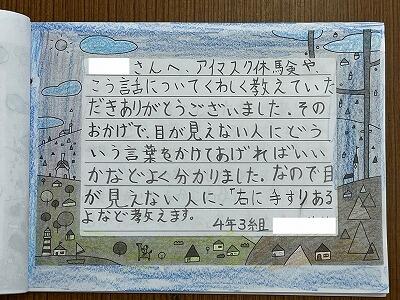 さんへ、アイマスク体験や、
こう話話についてくわしく教えていた
だきありがとうございました。その
おかげで、目が見えない人にどう
いう言葉をかけてあげればいい
かなどよく分かりました。なので目
が見えない人に、「右に手すりある
よなど教えます。
4年3組